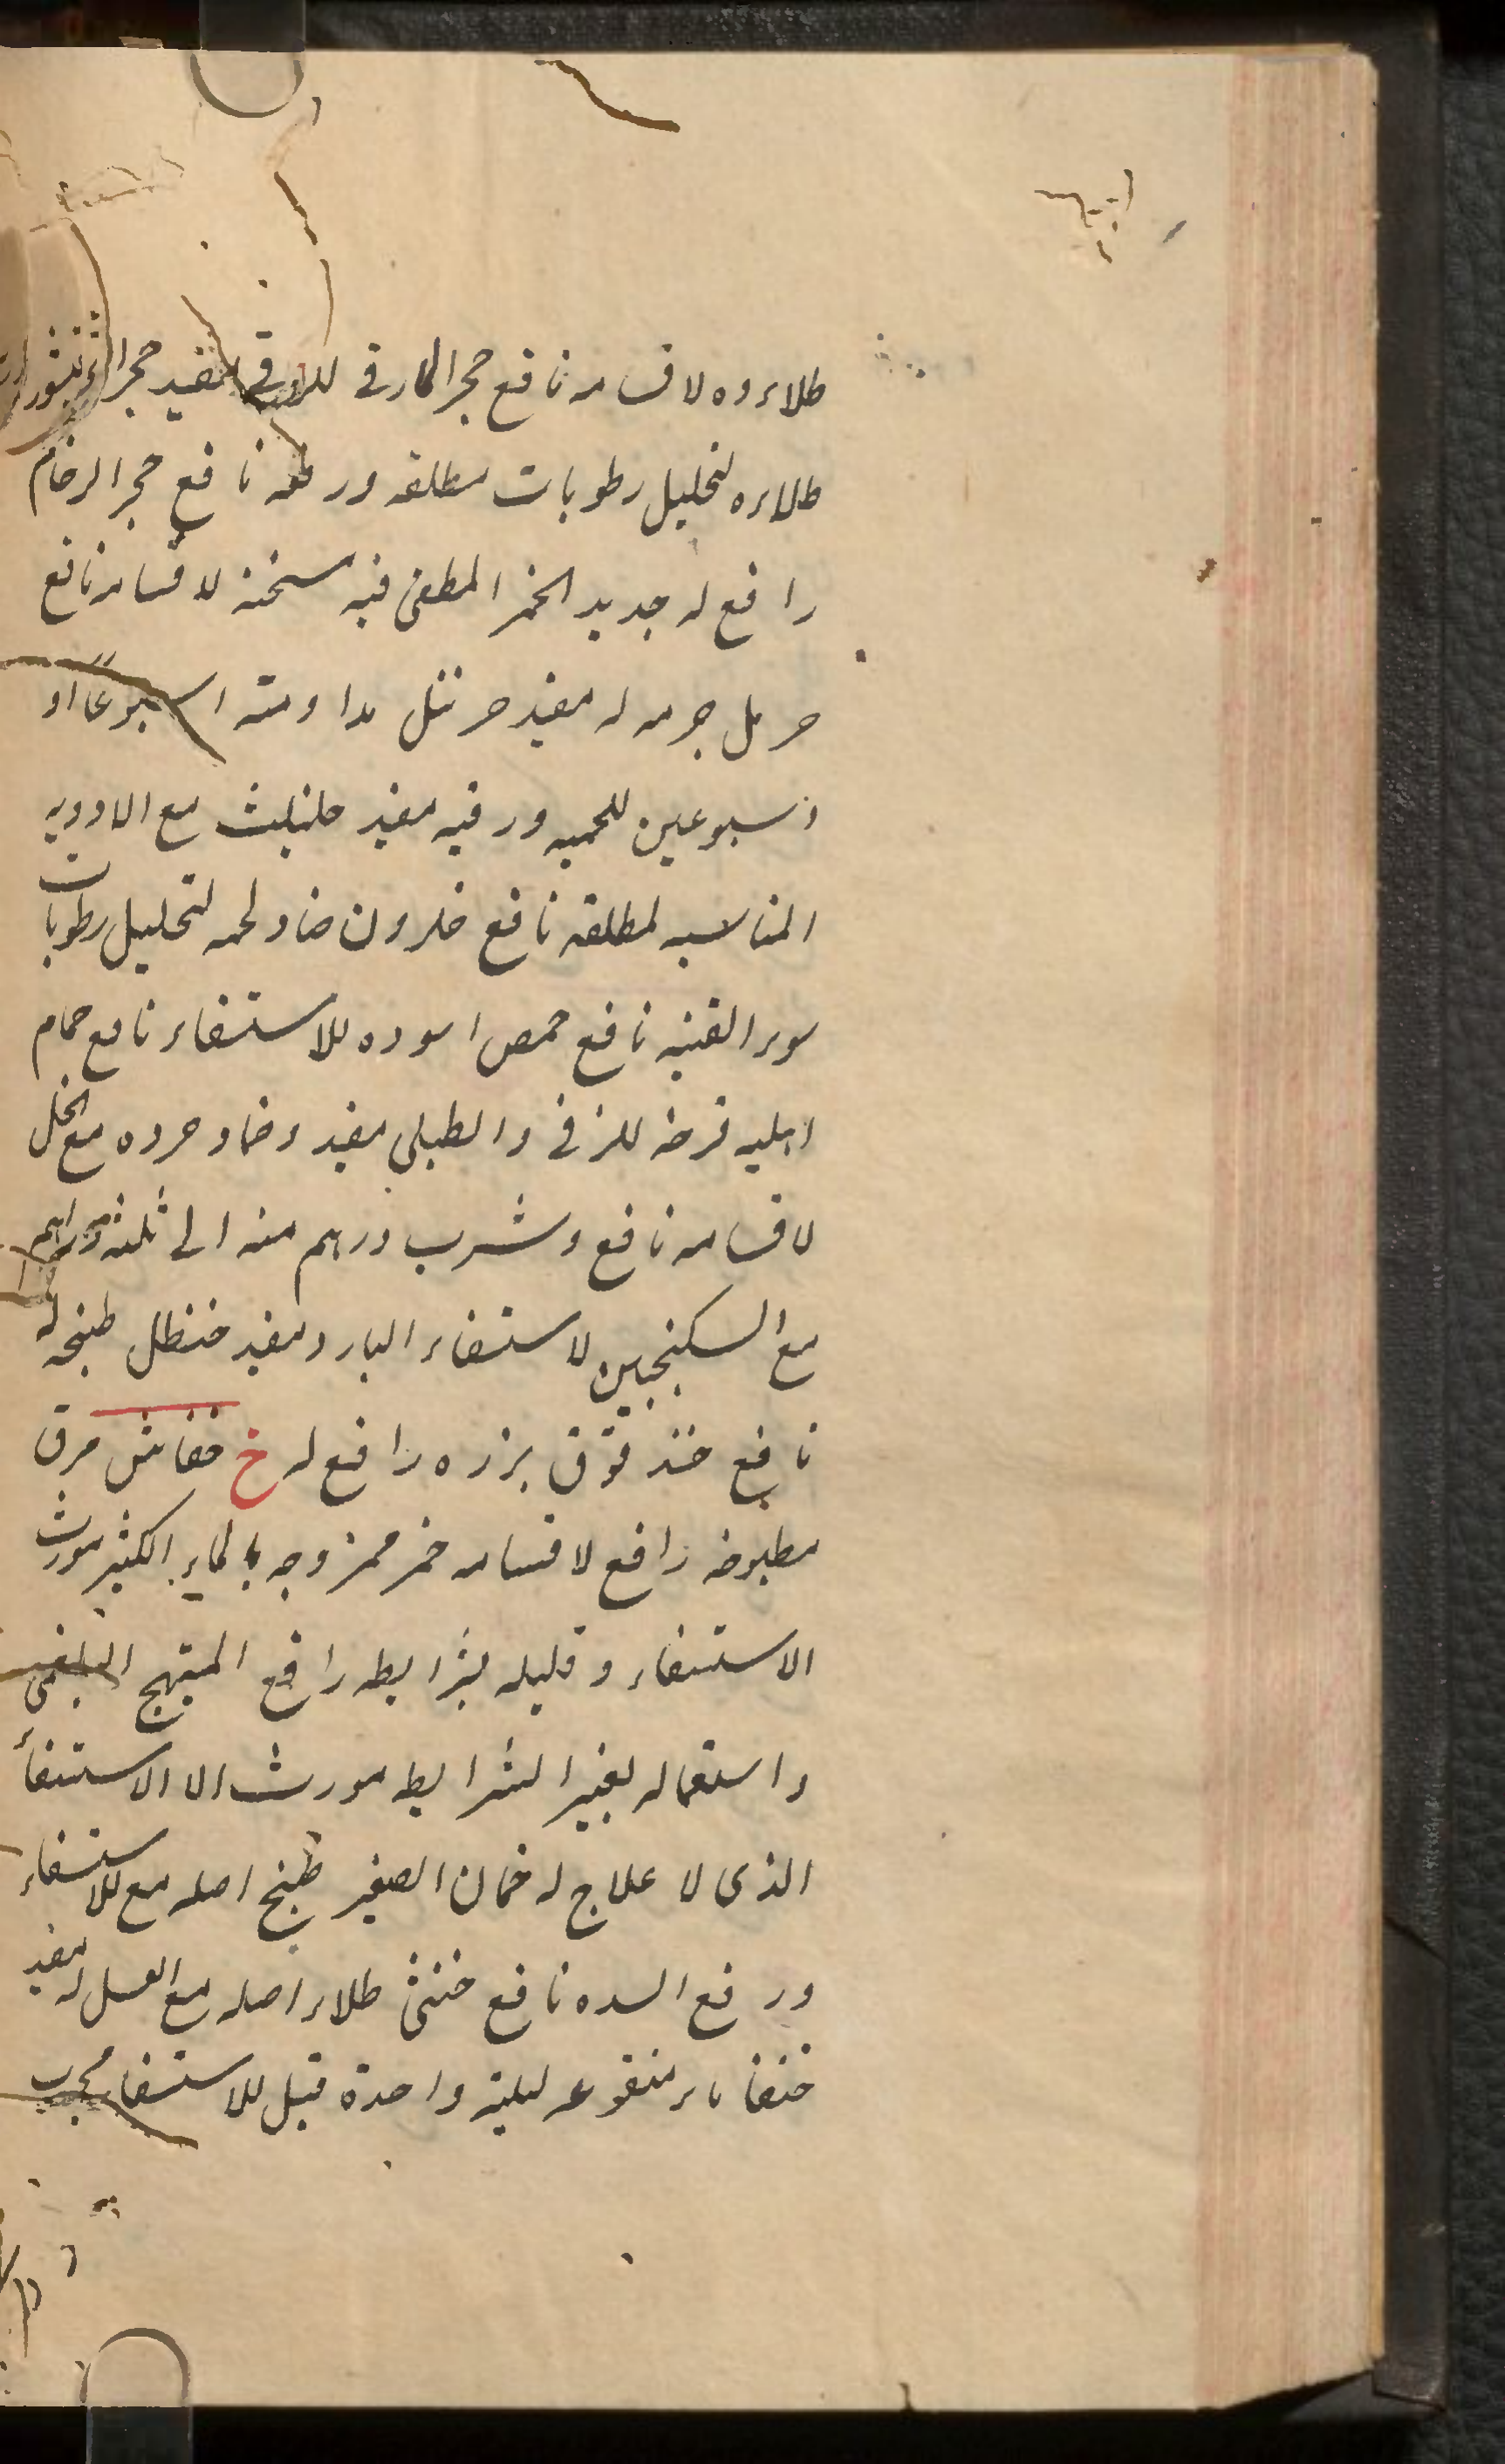 طلاءوه لاقسامه نافع حجر المارقى للزقى مفيد حجر
طلاءه لتحليل رطوبات مطلقه ورفعه نافع حجر الرخام
رافع له جديد الخمر المطفى فيه سخنه لاقسامه نافع
حرمل جرمه له مفيد مداومته اسبوعا او
اسبوعين للحميه ورقيه مفيد حلتيت مع الادويه
المناسبه لمطلقه نافع حلزون ضماد لحمه لتحليل رطوبات
سوء القنيه نافع حمص اسوده للاستسقاء نافع حمام
اهليه فرخه للزقى والطبلى مفيد وضماد مع الخل
لاقسامه نافع وشرب درهم منه الى ثلثه دراهم
مع السكنجبين لاستسقاء البارد مفيد حنظل طبخه له
نافع حندقوق بزره رافع له خ خفاش مرق
مطبوخه رافع لاقسامه خمر ممزوجه بالماء الكثير مورث
الاستسقاء وقليله بشرايطه رافع التهيج البلغمى
واستعماله بغير الشرايط مورث الا الاستسقأ
الذى لا علاج له خمان الصغير طبخ اصله مع للاستسقاء
ورفع السده نافع خنثى طلاء اصله مع العسل له مفيد
خنفساء منقوعه ليلة واحدة قبل للاستسقاء مجرب